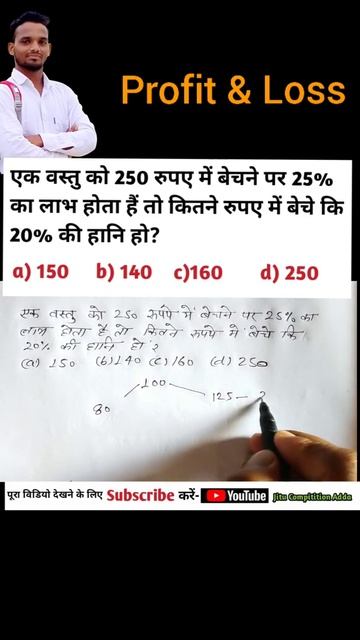 Profit & Loss
एक वस्तु को 250 रुपए में बेचने पर 25%
का लाभ होता हैं तो कितने रुपए में बेचे कि
20% की हानि हो?
a) 150 b) 140 c)160 d) 250
एक वस्तु को 250 रूपये में बेचने पर 25% का
लाभ होता है तो कितने रूपये में बेचे कि
20% की हानि हो ?
(a) 150 (b) 140 (c) 160 (d) 250
100
80 125 - 2
पूरा विडियो देखने के लिए Subscribe करें- YouTube Jitu Compitition Adda